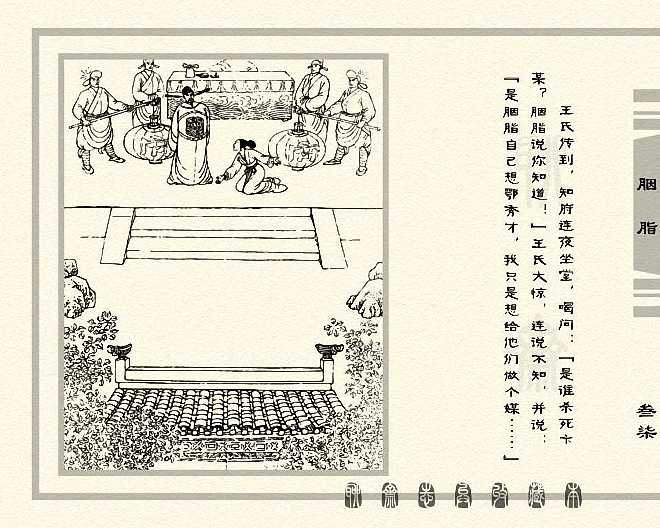 王氏传到，知府连夜坐堂，喝问：“是谁杀死卞
某？胭脂说你知道！”王氏大惊，连说不知，并说：
“是胭脂自己想鄂秀才，我只是想给他们做个媒……”
胭脂
叁柒